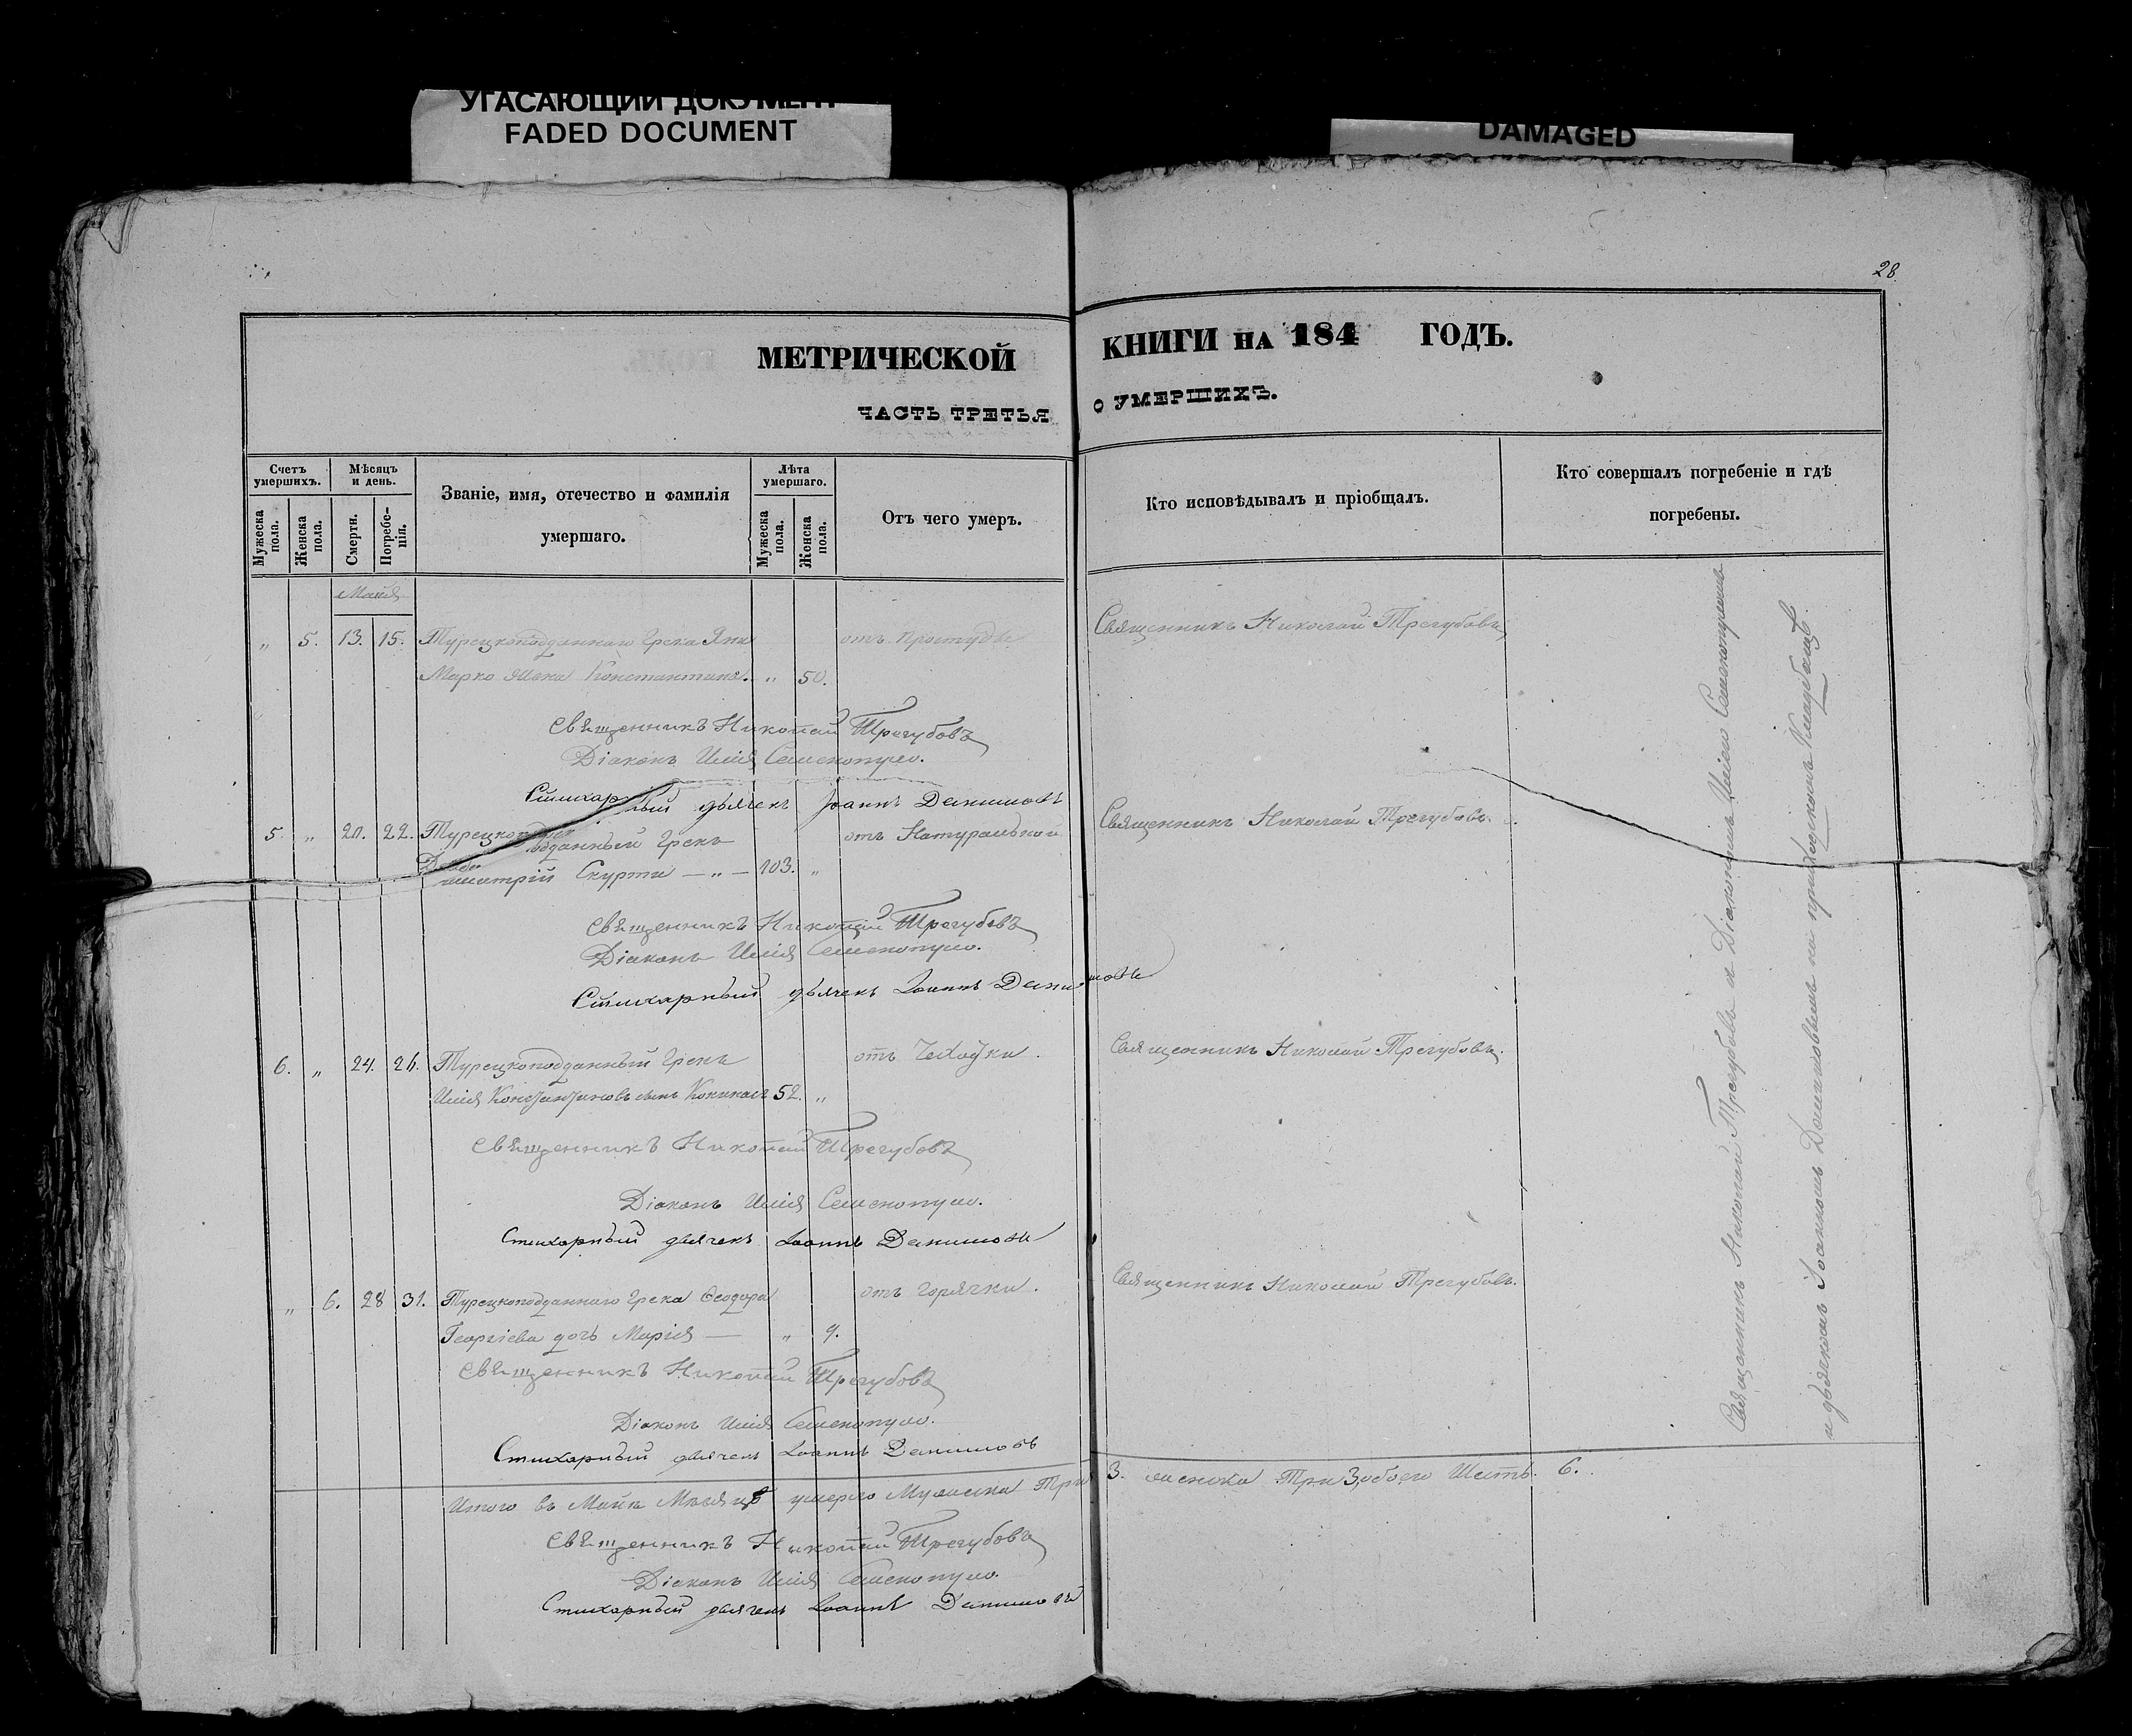 УГАСАЮЩИЙ ДОКУМЕНТ
FADED DOCUMENT
DAMAGED
28
МЕТРИЧЕСКОЙ КНИГИ НА 184 ГОДЪ.
ЧАСТЬ ТРЕТЬЯ О УМЕРШИХЪ.
Счетъ умершихъ.
Мужеска пола.
Женска пола.
Мѣсяцъ и день.
Смерти.
Погребе-нія.
Званіе, имя, отечество и фамилія
умершаго.
Лѣта умершаго.
Мужеска пола.
Женска пола.
Отъ чего умеръ.
Кто исповѣдывалъ и пріобщалъ.
Кто совершалъ погребеніе и гдѣ
погребены.
Майя
" 5. 13. 15. Турецкоподданнаго Грека Яни отъ простуды Священникъ Николай Трегубовъ
Марко жена Константина. " 50.
Священникъ Николай Трегубовъ
Діаконъ Илія
Стихарный дьячекъ Іоаннъ
5. " 20. 22. Турецкоподданный Грекъ отъ Натуральной Священникъ Николай Трегубовъ.
Димитрій Скурти — " — 103. "
Священникъ Николай Трегубовъ
Діаконъ Илія
Стихарный дьячекъ Іоаннъ
6. " 24. 26. Турецкоподданный Грекъ отъ Чехотки. Священникъ Николай Трегубовъ.
Илія Константиновъ сынъ 52. "
Священникъ Николай Трегубовъ
Діаконъ Илія
Стихарный дьячекъ Іоаннъ
" 6. 28 31. Турецкоподданнаго Грека Ѳеодора отъ горячки. Священникъ Николай Трегубовъ.
Георгіева дочь Марія — "
Священникъ Николай Трегубовъ
Діаконъ Илія
Стихарный дьячекъ Іоаннъ
Итого въ Майѣ Мѣсяцѣ умерло Мужеска Три 3. женска Три 3, обоего Шесть. 6.
Священникъ Николай Трегубовъ
Діаконъ Илія
Стихарный дьячекъ Іоаннъ
Священникъ Николай Трегубовъ и Діакономъ Иліею
и дьячкомъ Іоанномъ на приходскомъ Кладбищѣ.